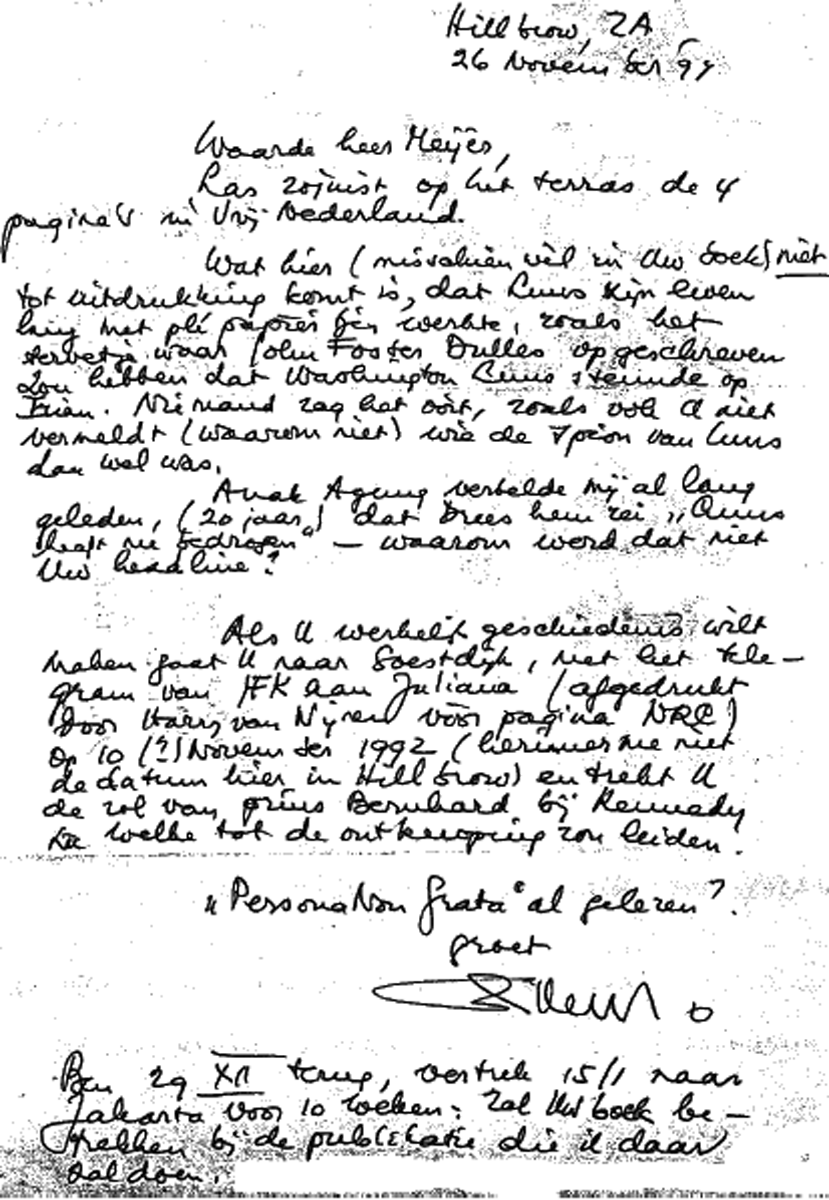 Hillbrow, ZA,
26 November 94
Waarde heer Meijer,
Las zojuist op het terras de 4
pagina's in Vrij Nederland.
Wat hier (misschien wel in Uw boek) niet
tot uitdrukking komt is, dat Luns zijn leven
lang met plé papier werkte, zoals het
servetje waar John Foster Dulles opgeschreven
zou hebben dat Washington Luns steunde op
Irian. Niemand zag het ooit, zoals ook U niet
vermeldt (waarom niet) wie de spion van Luns
dan wel was.
Anak Agung vertelde mij al lang
geleden, (20 jaar) dat Drees hem zei „Luns
heeft me bedrogen" — waarom werd dat niet
Uw headline?
Als U werkelijk geschiedenis wilt
maken gaat U naar Soestdijk, met het tele-
gram van JFK aan Juliana (afgedrukt
door Harry van Wijnen vóór pagina NRC)
op 10 (?) November 1992 (herinner me niet
de datum hier in Hillbrow) en trekt U
de rol van prins Bernhard bij Kennedy
na welke tot de ontknoping zou leiden.
„Persona Non Grata" al gelezen?
groet
Ben 29 XII terug, vertrek 15/1 naar
Jakarta voor 10 weken: Zal Uw boek be-
trekken bij de publikatie die ik daar
zal doen.